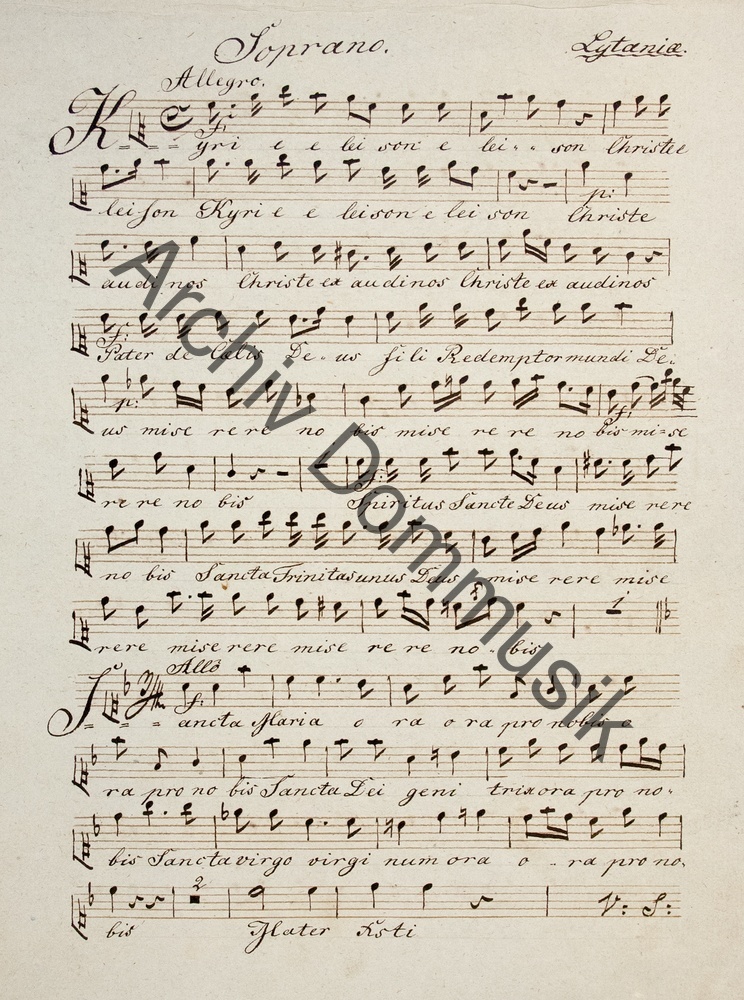 Soprano. Lytaniæ.
Allegro.
Kyri e e lei son e lei -- son Christe e
f:
lei son Kyri e e leison e lei son Christe
p:
audi nos Christe ex audinos Christe ex audinos
Pater de Cælis De -- us fili Redemptor mundi De-
f:
us mise re re no bis mise re re no bis mi-se
p: f:
re re no bis Spiritus Sancte Deus mise rere
f:
no bis Sancta Trinitas unus Deus mise rere mise
rere mise rere mise re re no -- bis
1
Allº
Sancta Maria o ra o ra pro nobis o
f:
ra pro no bis Sancta Dei geni trix ora pro no-
bis Sancta virgo virgi num ora o -- ra pro no-
2
bis Mater V: S:
Archiv Dommusik